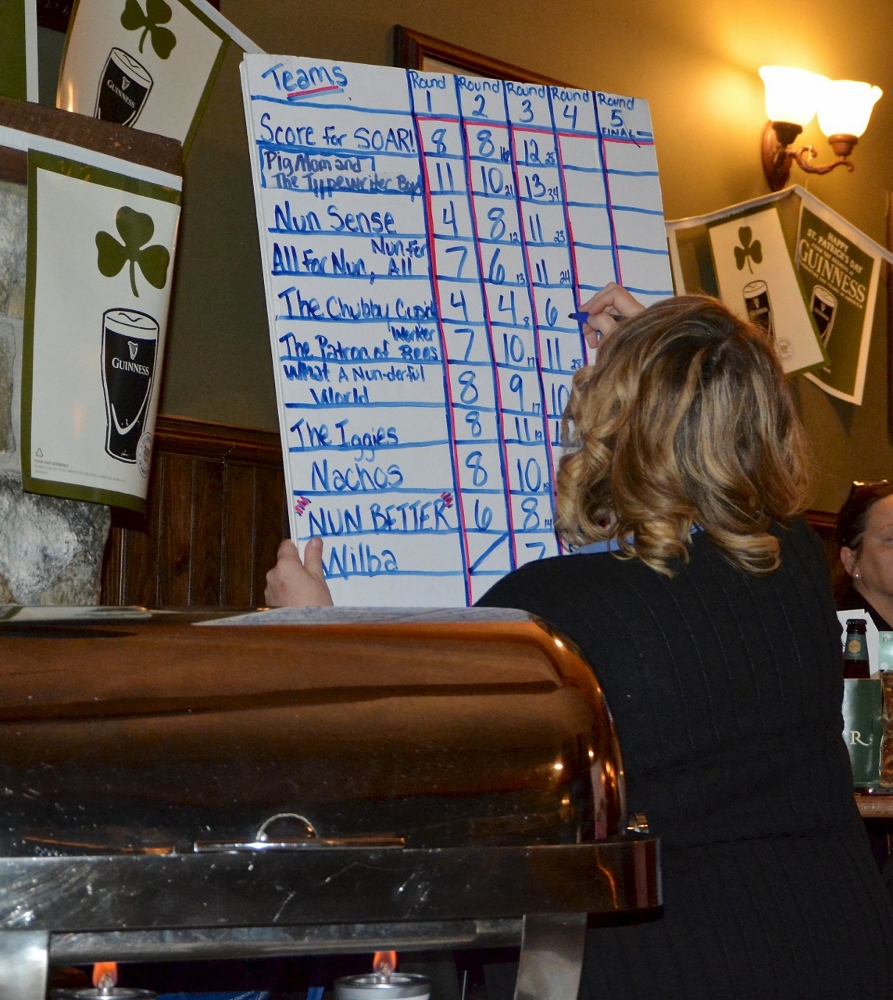 Teams Round 1 Round 2 Round 3 Round 4 Round 5 FINAL
Score for SOAR! 8 8 16 12 28
Pig Mom and
The Typewriter 11 10 21 13 34
Nun Sense 4 8 12 11 23
Nun for
All for Nun, All 7 6 13 11 24
The Chubby 4 4 8 6
Worker
The Patron of Bees 7 10 17 11 28
What A Nun-derful
World 8 9 17 10
The Iggies 8 11 19
Nachos 8 10
NUN BETTER 6 8 14
Wilba 7
GUINNESS
GUINNESS
HAPPY
ST. PATRICK'S DAY
GUINNESS
R